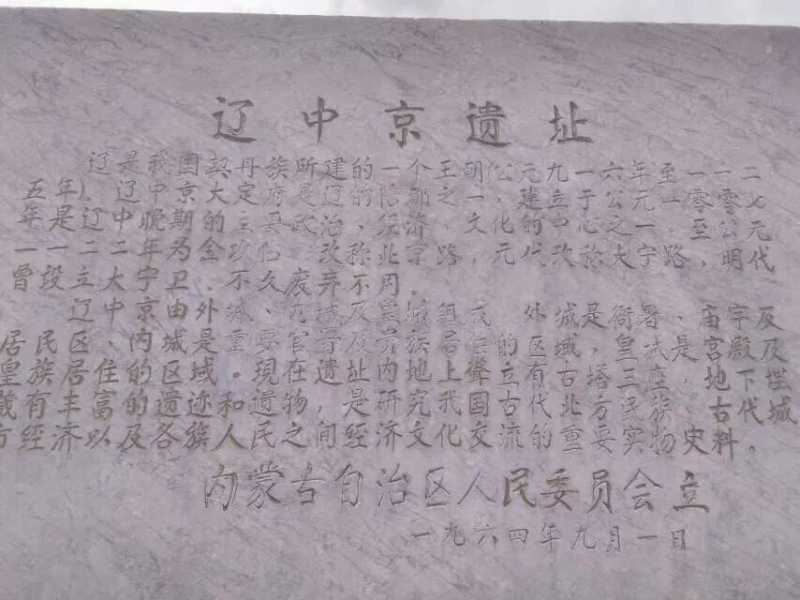 辽中京遗址
辽是我国契丹族所建的一个王朝(公元九一六年至一一二
五年)、辽中京大定府是辽的陪都之一,建于公元一零零七
年是辽中晚期的主要政治、经济、文化的中心公元一一至公元
一一二二年为金攻占、改称北京路,元代改称大宁路,明代
曾设立大宁卫、不久废弃不用。
辽中京由外城、内城及皇城组成 外城是衙署、庙宇及
居民区、内城是重要官署及贵族居住的区域,皇城是宫殿及
皇族居住的区域。现在遗址内地上耸立有古塔三座,地下埋
藏有丰富的遗迹和遗物,是研究我国古代北方民族古代城
方经济以及各族人民之间经济文化交流的重要实物史料。
内蒙古自治区人民委员会立
一九六四年九月一日